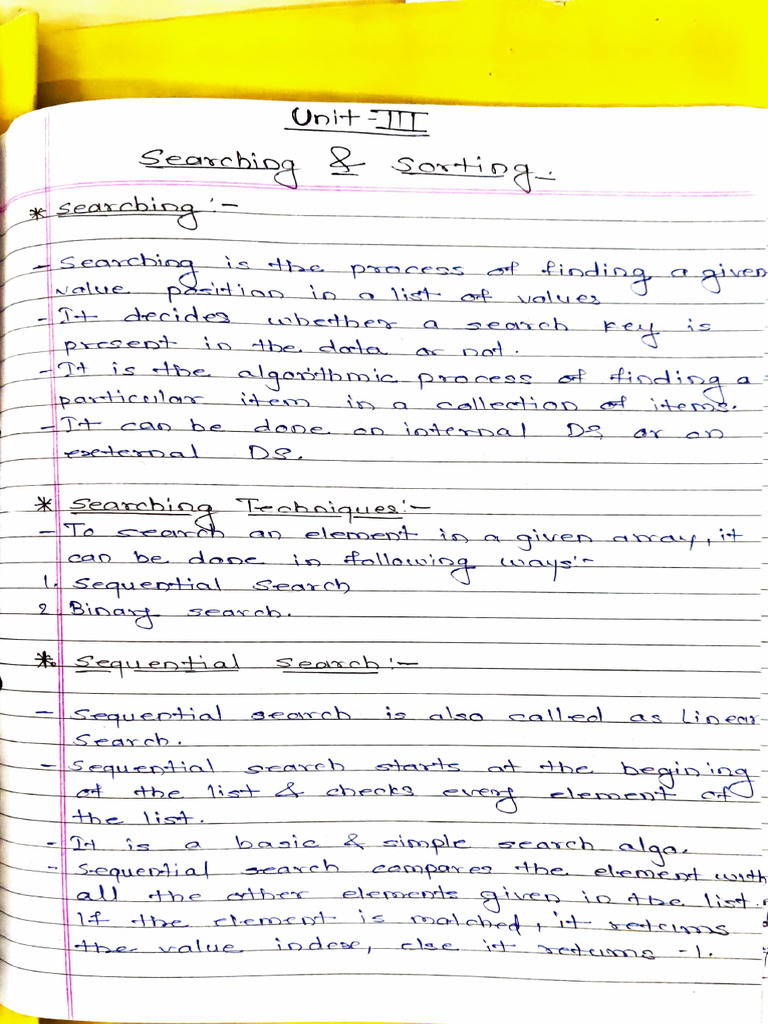 Unit-III
Searching & Sorting.
* Searching :-
- Searching is the process of finding a given
value position in a list of values
- It decides whether a search key is
present in the data or not.
- It is the algorithmic process of finding a
particular item in a collection of items.
- It can be done on internal DS or on
external DS.
* Searching Techniques:-
- To search an element in a given array, it
can be done in following ways:-
1. Sequential Search
2. Binary search.
* Sequential Search :-
- Sequential search is also called as Linear
Search.
- Sequential search starts at the begining
of the list & checks every element of
the list.
- It is a basic & simple search algo.
- Sequential search compares the element with
all the other elements given in the list.
If the element is matched, it returns
the value index, else it returns -1.